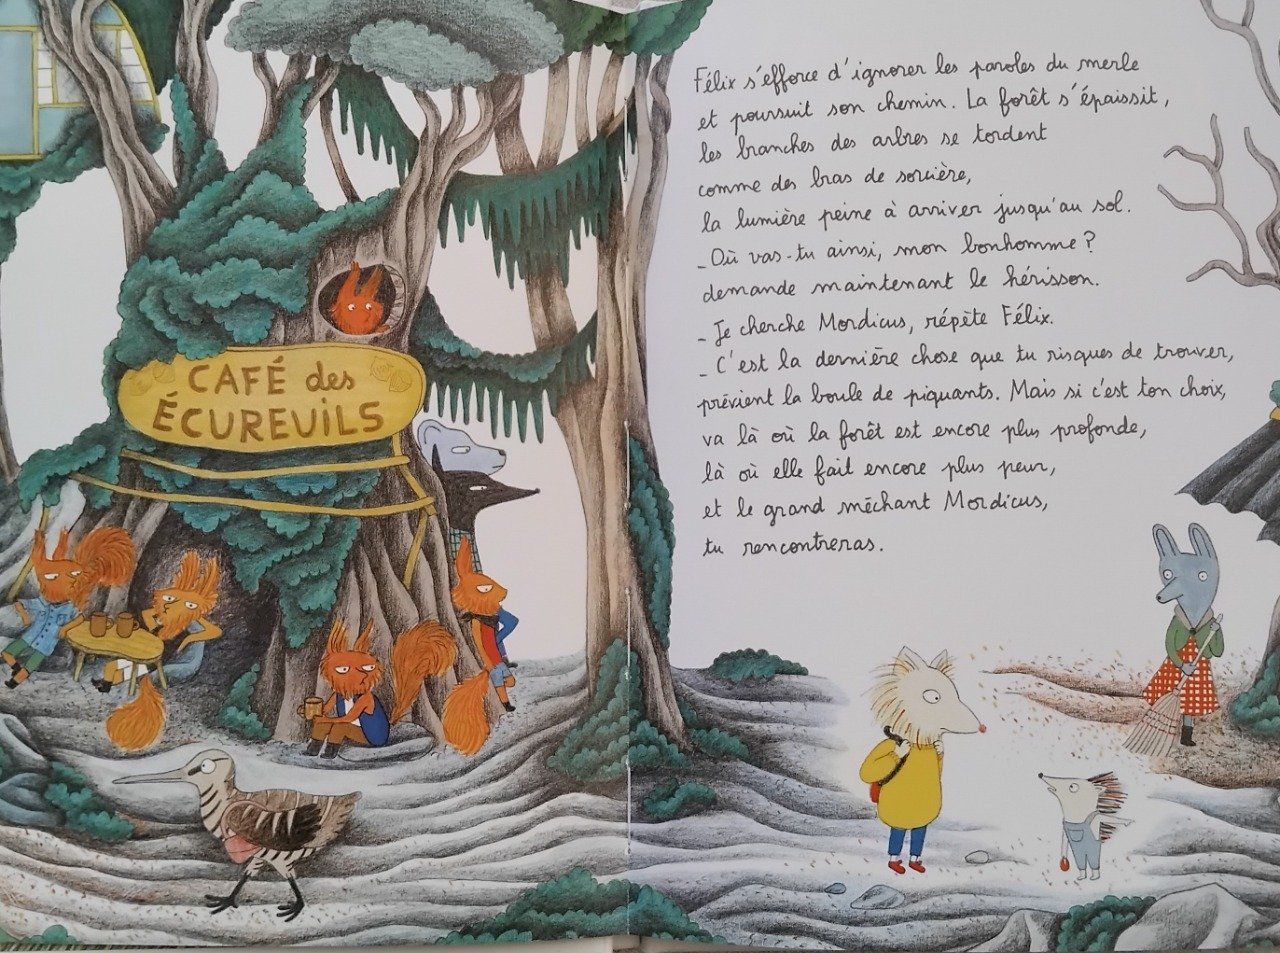 CAFÉ des
ÉCUREUILS
Félix s'efforce d'ignorer les paroles du merle
et poursuit son chemin. La forêt s'épaissit,
les branches des arbres se tordent
comme des bras de sorcière,
la lumière peine à arriver jusqu'au sol.
_ Où vas-tu ainsi, mon bonhomme ?
demande maintenant le hérisson.
_ Je cherche Mordicus, répète Félix.
_ C'est la dernière chose que tu risques de trouver,
prévient la boule de piquants. Mais si c'est ton choix,
va là où la forêt est encore plus profonde,
là où elle fait encore plus peur,
et le grand méchant Mordicus,
tu rencontreras.